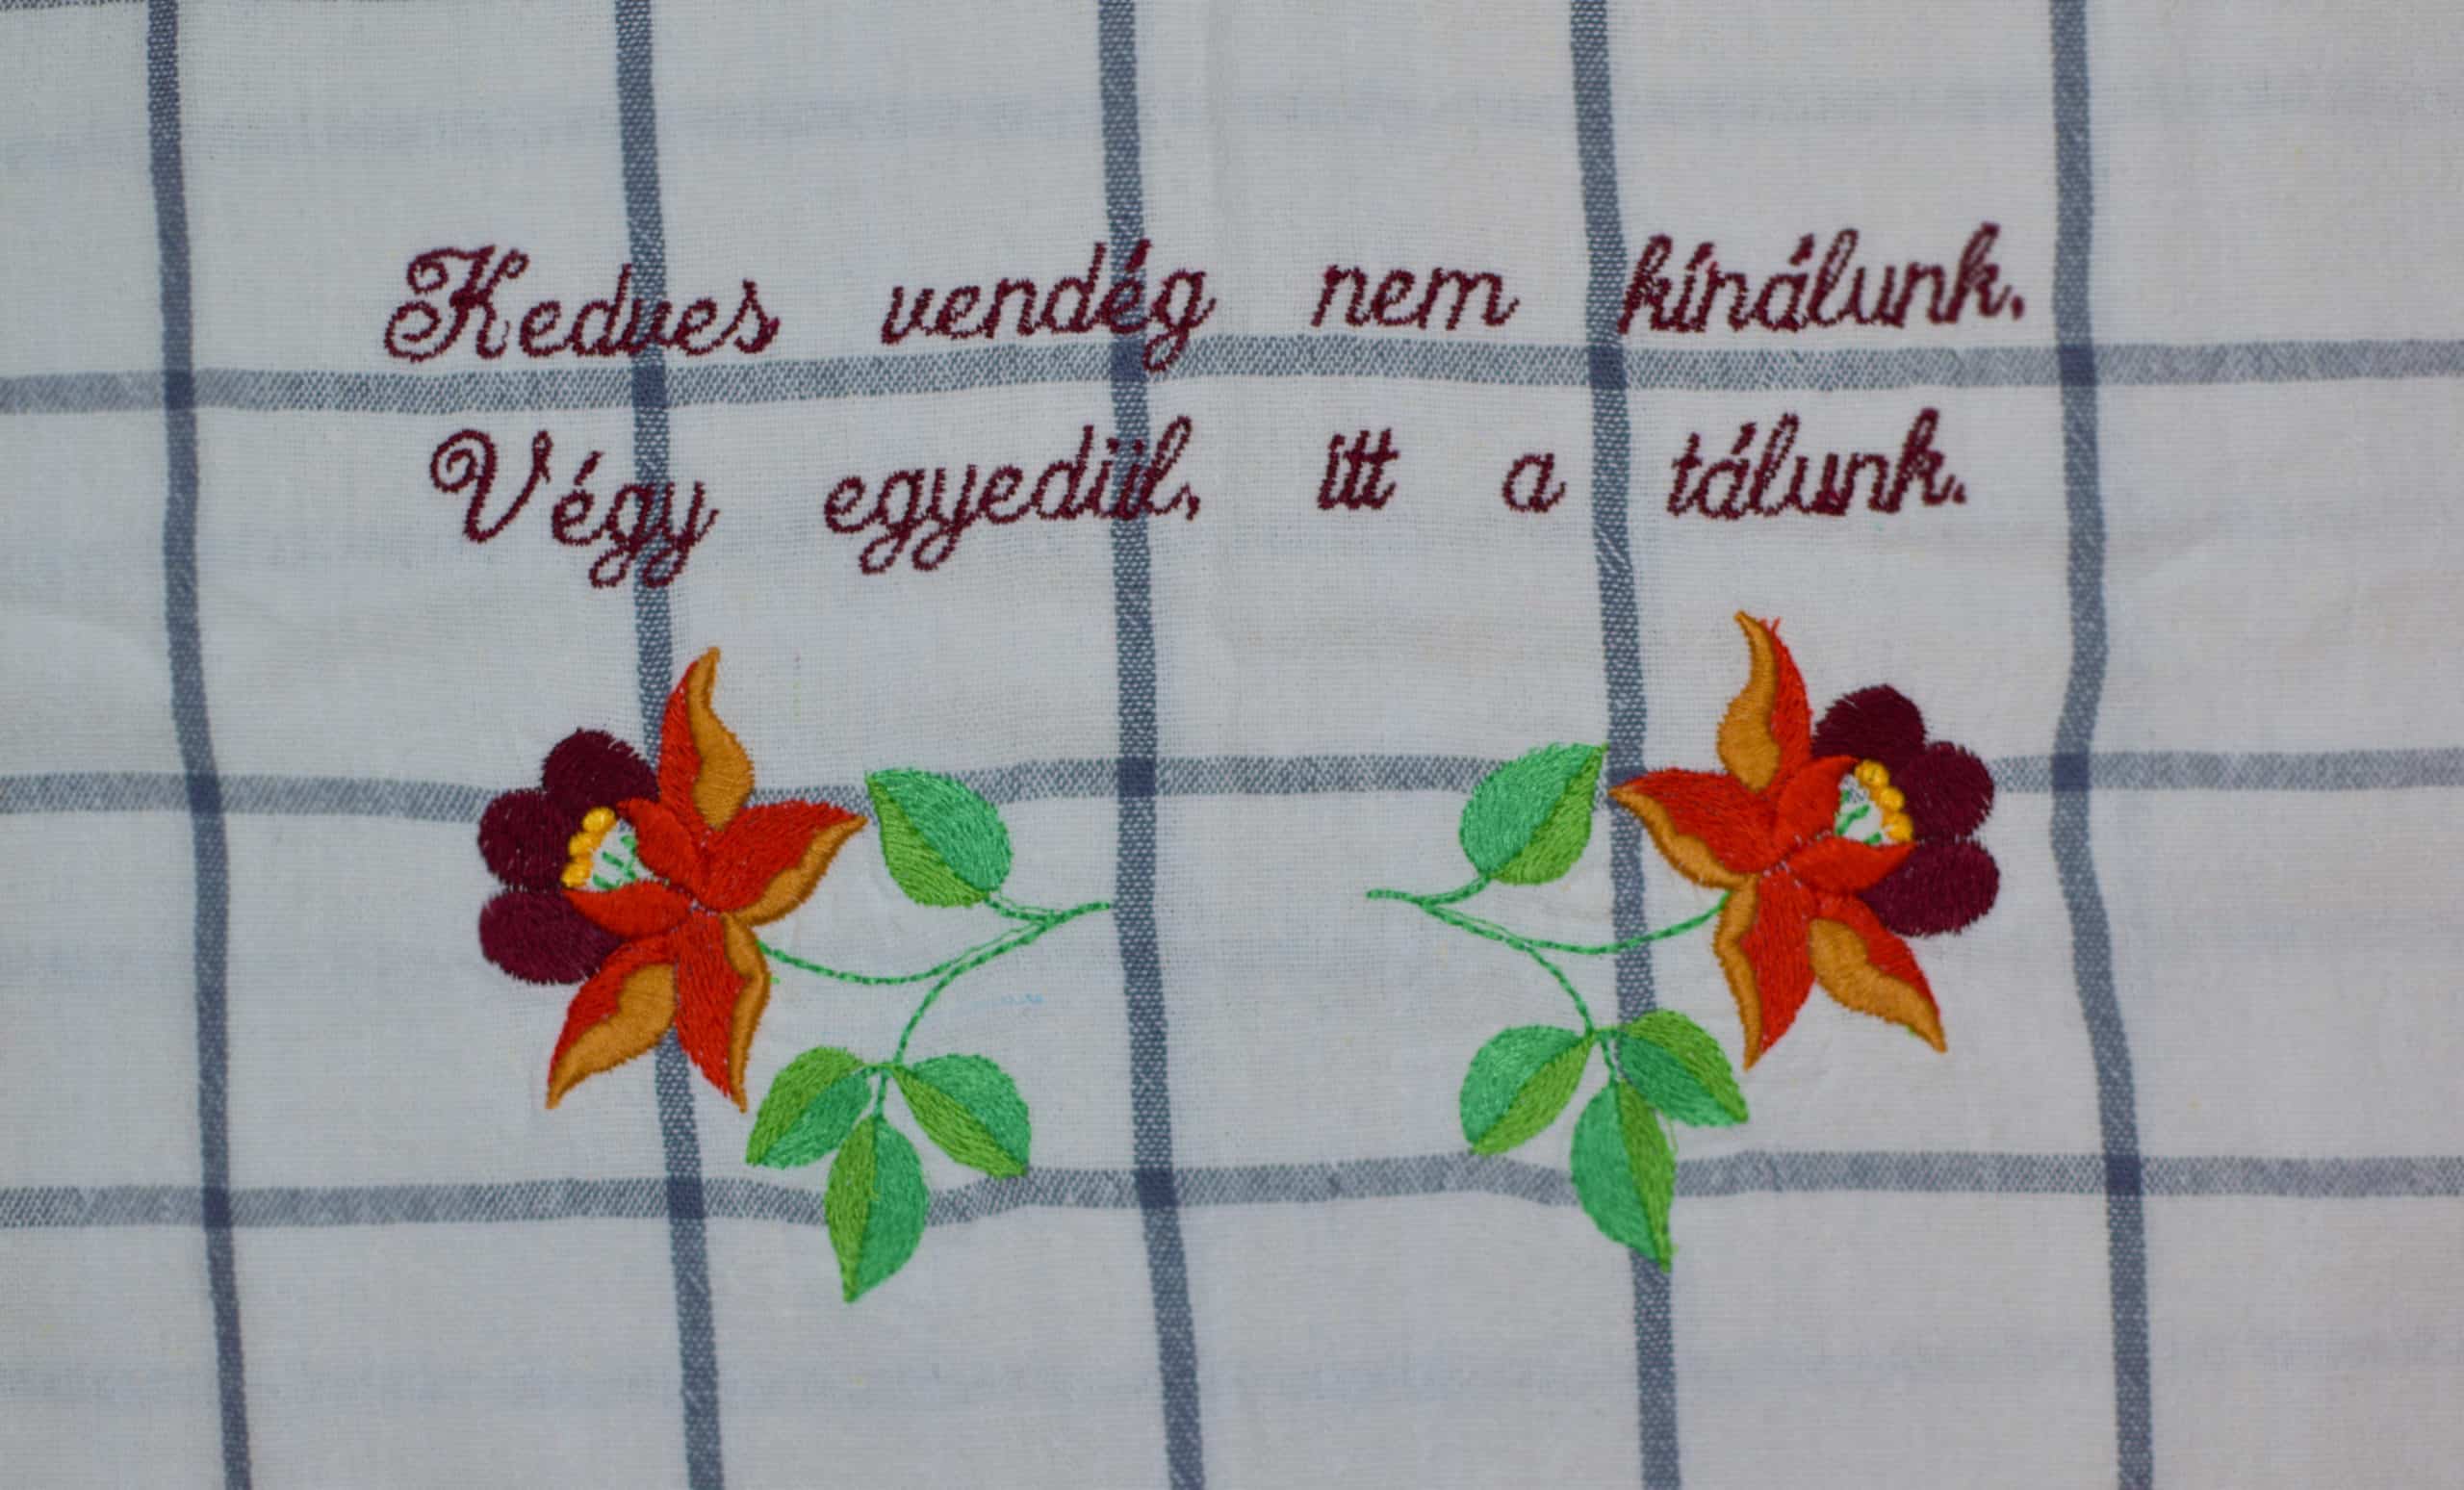 Kedves vendég nem kínálunk.
Végy egyedül, itt a tálunk.